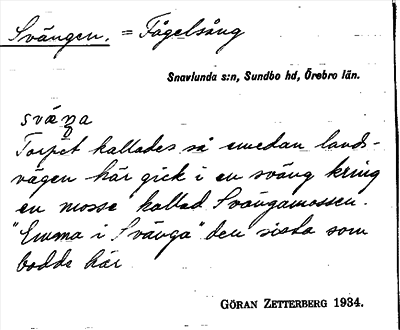 Svängen. = Fågelsång
Snavlunda s:n, Sundbo hd, Örebro län.
sväŋa
Torpet kallades så emedan lands-
vägen här gick i en sväng kring
en mosse kallad Svängamossen.
"Emma i Svänga" den sista som
bodde här
GÖRAN ZETTERBERG 1934.